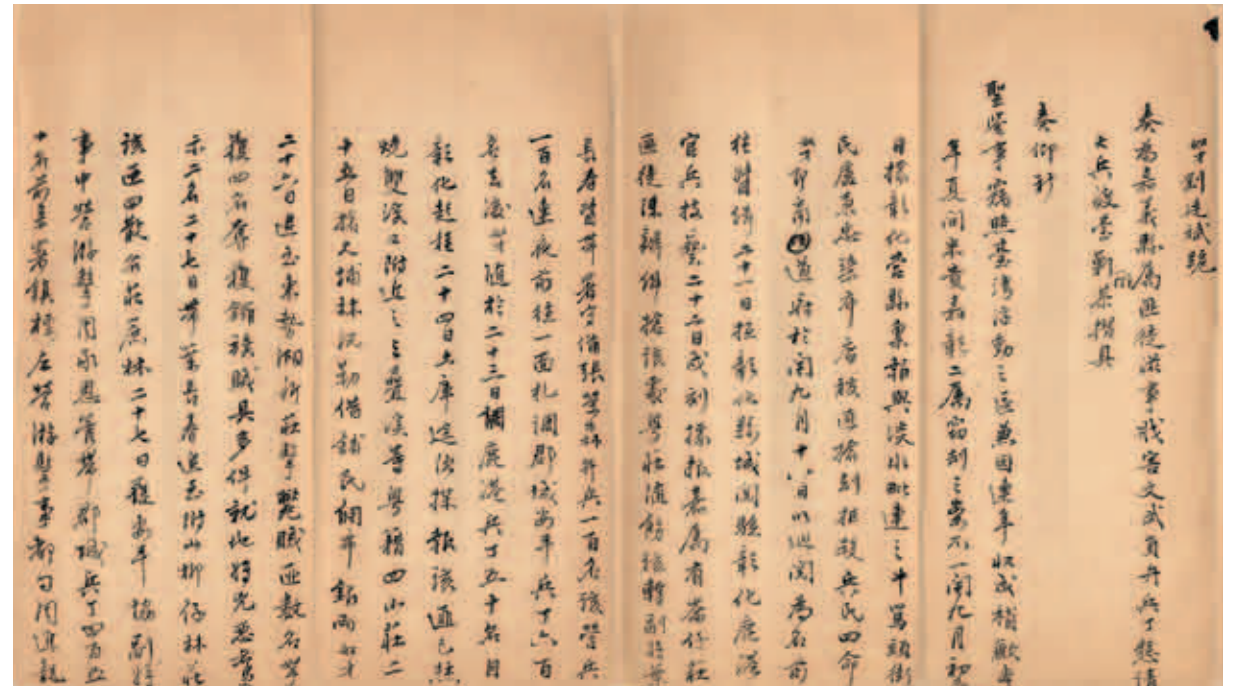 奏為嘉義縣屬匪徒滋事戕害文武員弁兵丁懇請
大兵渡臺勦恭摺具
奏仰祈
聖鑒事竊照臺灣浮動之區兼因連年收成稍歉本
年夏間米貴嘉彰二屬竊刦之案不一閏九月初
日據彰化營縣稟報與淡水毗連之斗罵頭街
民店被匪搶刦拒殺兵民四命
即商道府於閏九月十八日以巡閱為名前
往督緝二十一日抵彰化縣城閱驗彰化鹿港
官兵技藝二十二日戌刻據報嘉屬有仔莊
匪徒陳辦糾搶張粵莊隨飭護副將葉
長春督帶署守備張榮森并兵一百名該營兵
一百名連夜前往一面札調郡城安平兵丁六百
名去後隨於二十三日調鹿港兵丁五十名自
彰化起程二十四日土庫途次探報該逆已
燒雙溪口附近之溪等粵籍四小莊二
十五日據大埔林汛勒借舖民銀兩
二十六日進至東勢湖所莊擊斃賊匪數名生
獲四名奪獲旗賊具多件就此將兇惡
示二名二十七日葉長春進至附山柳仔林莊
該匪四散各莊蔗林二十七日護安平協副將
事中營游擊周承恩管帶郡城兵丁四百五
十名前來署鎮標左營游擊事都司周進龍